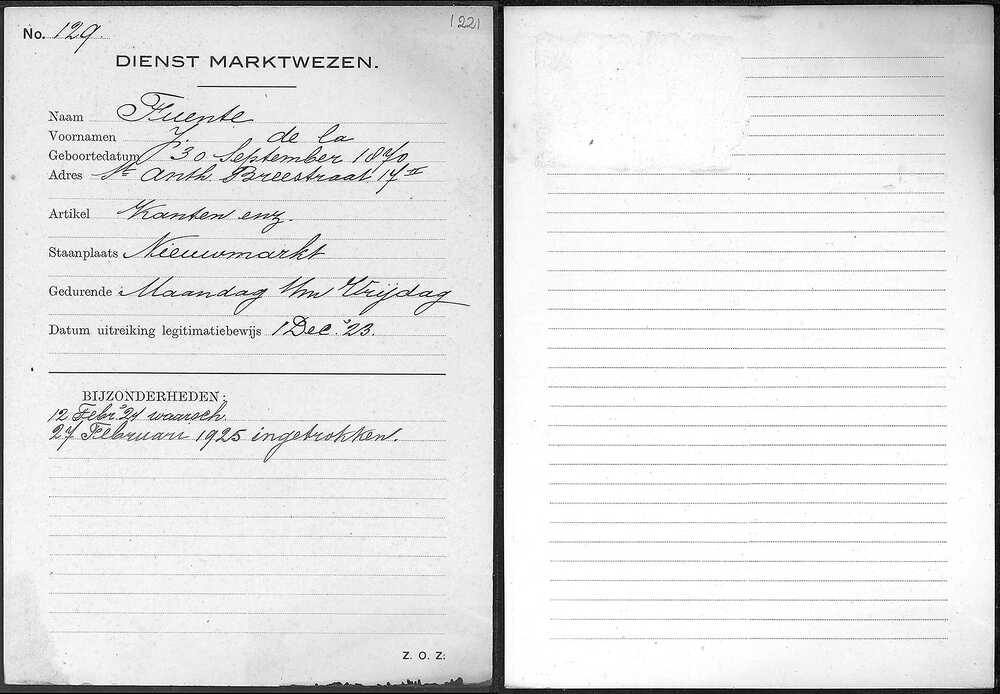 No. 129.
1221
DIENST MARKTWEZEN.
Naam Fuente
Voornamen J. de la
Geboortedatum 30 September 1870
Adres St Anth. Breestraat 17 II
Artikel Kanten enz.
Staanplaats Nieuwmarkt
Gedurende : Maandag t/m Vrijdag
Datum uitreiking legitimatiebewijs 1 Dec. '23.
BIJZONDERHEDEN:
12 Febr. '24 waarsch.
27 Februari 1925 ingetrokken.
Z. O. Z.